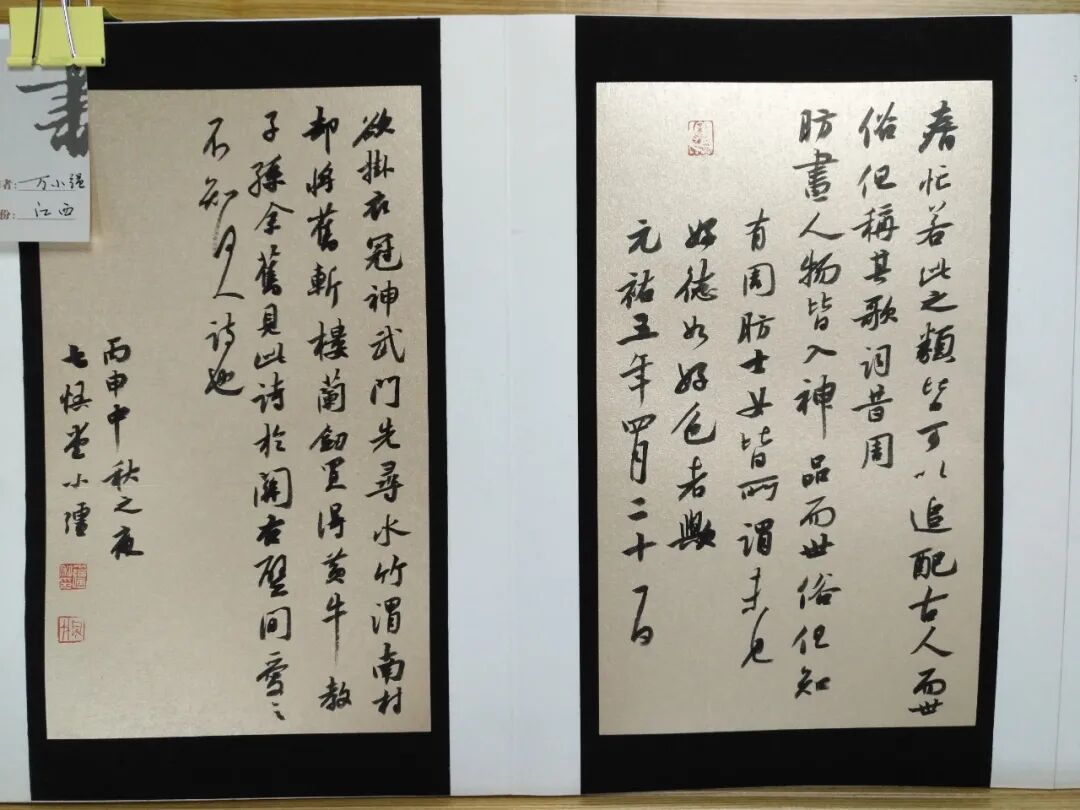 書
者: 万小强
份: 江西
春忙若此之類皆可以追配古人而世
俗但稱其歌詞昔周
昉畫人物皆入神品而世俗但知
有周昉士女皆所謂未見
好德如好色者歟
元祐五年四月二十一日
欲掛衣冠神武門先尋水竹渭南村
却將舊斬樓蘭劒買得黃牛教
子孫余舊見此詩於關右壁間愛之
不知何人詩也
丙申中秋之夜
七惧堂小彊